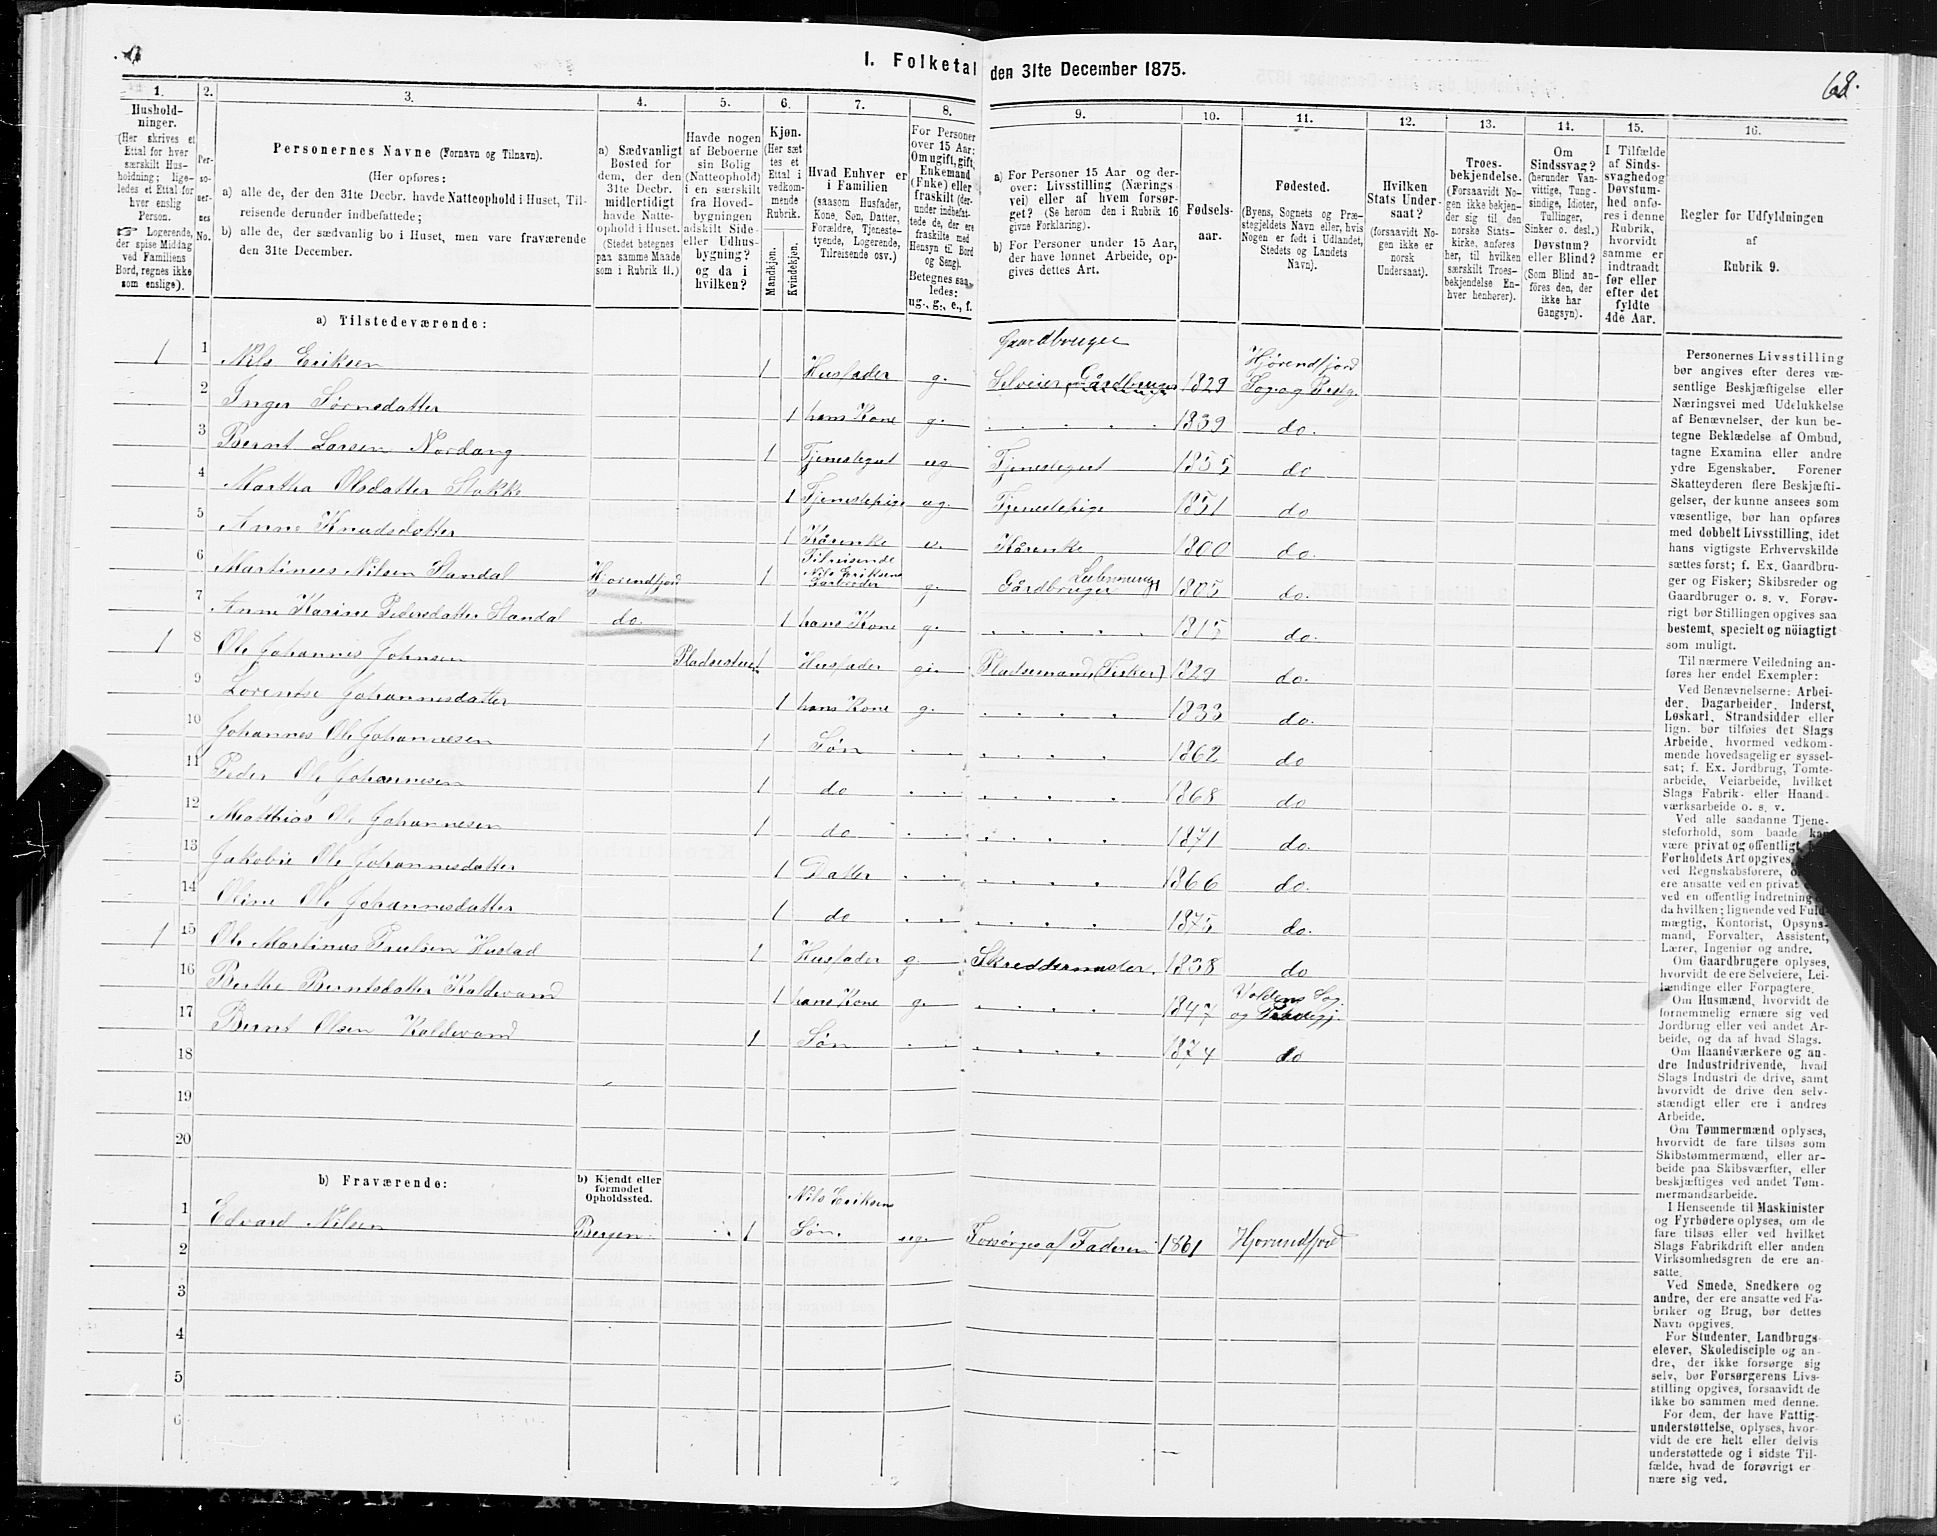 I. Folketal den 31te December 1875.
68.
1.
Hushold-
ninger.
(Her skrives et
Ettal for hver
særskilt Hus-
holdning; lige-
ledes et Ettal for
hver enslig
Person.
☞ Logerende,
der spise Middag
ved Familiens
Bord, regnes ikke
som enslige).
2.
Per-
so-
ner-
nes
No.
3.
Personernes Navne (Fornavn og Tilnavn).
(Her opføres:
a) alle de, der den 31te Decbr. havde Natteophold i Huset, Til-
reisende derunder indbefattede;
b) alle de, der sædvanlig bo i Huset, men vare fraværende
den 31te December.
4.
a) Sædvanligt
Bosted for
dem, der den
31te Decbr.
midlertidigt
havde Natte-
ophold i Huset.
(Stedet betegnes
paa samme Maade
som i Rubrik 11.)
5.
Havde nogen
af Beboerne
sin Bolig
(Natteophold)
i en særskilt
fra Hoved-
bygningen
adskilt Side-
eller Udhus-
bygning?
og da i
hvilken?
6.
Kjøn.
(Her sæt-
tes et
Ettal i
vedkom-
mende
Rubrik.
Mandkjøn.
Kvindekjøn.
7.
Hvad Enhver er
i Familien
(saasom Husfader,
Kone, Søn, Datter,
Forældre, Tjeneste-
tyende, Logerende,
Tilreisende osv.)
8.
For Personer
over 15 Aar:
Om ugift, gift,
Enkemand
(Enke) eller
fraskilt (der-
under indbefat-
tede de, der ere
fraskilte med
Hensyn til Bord
og Seng).
Betegnes saa-
ledes:
ug., g., e., f.
9.
a) For Personer 15 Aar og der-
over: Livsstilling (Nærings-
vei) eller af hvem forsør-
get? (Se herom den i Rubrik 16
givne Forklaring).
b) For Personer under 15 Aar,
der have lønnet Arbeide, op-
gives dettes Art.
10.
Fødsels-
aar.
11.
Fødested.
(Byens, Sognets og Præ-
stegjeldets Navn eller, hvis
Nogen er født i Udlandet,
Stedets og Landets
Navn).
12.
Hvilken
Stats Under-
saat?
(forsaavidt No-
gen ikke er
norsk
Undersaat).
13.
Troes-
bekjendelse.
(Forsaavidt No-
gen ikke bekjen-
der sig til den
norske Stats-
kirke, anføres
her, til hvilken
særskilt Troes-
bekjendelse En-
hver henhører).
14.
Om
Sindssvag?
(herunder Van-
vittige, Tung-
sindige, Idioter,
Tullinger,
Sinker o. desl.)
Døvstum?
eller Blind?
(Som Blind an-
føres den, der
ikke har
Gangsyn).
15.
I Tilfælde
af Sinds-
svaghed og
Døvstum-
hed anfø-
res i denne
Rubrik,
hvorvidt
samme er
indtraadt
før eller
efter det
fyldte
4de Aar.
16.
Regler for Udfyldningen
af
Rubrik 9.
a) Tilstedeværende:
Gaardbruger
1 1 Nils Eriksen 1 Husfader g. Selveier, Gårdbruger 1829 Hjørendfjord Sog og Prstg.
2 Inger Sørnsdatter 1 hans Kone g. 1839 do.
3 Bernt Larsen Nordang 1 Tjenestegut ug Tjenestegut 1855 do
4 Martha Olsdatter Stokke 1 Tjenestepige ug. Tjenestepige 1851 do
5 Anne Knudsdatter 1 Kårenke e. Kårenke 1800 do.
6 Martinus Nilsen Standal Hjorendfjord 1 Tilreisende Nils Eriksens g. Gårdbruger 1805 do.
7 Anne Karine Pedersdatter Standal do. 1 hans Kone g. 1815 do.
1 8 Ole Johannes Johnsen Pladsestuen 1 Husfader gi. Pladsemand, (Fisker) 1829 do.
9 Lorentse Johannesdatter 1 hans Kone g. 1833 do.
10 Johannes Ole Johannesen 1 Søn 1862 do
11 Peder Ole Johannesen 1 do 1868 do
12 Matthias Ole Johannesen 1 do 1871 do.
13 Jakobie Ole Johannesdatter 1 Datter 1866 do.
14 Oline Ole Johannesdatter 1 do 1875 do.
1 15 Ole Martinus Poulsen Hustad 1 Husfader g. Skreddermester. 1838 do
16 Berthe Berntsdatter Kaldevand 1 hans Kone g. 1847 Voldens Sog. og
17 Bernt Olsen Kaldevand 1 Søn 1874 do
18
19
20
b) Fraværende:
b) Kjendt eller
formodet
Opholdssted.
1 Edvard Nilsen Bergen 1 Nils Eriksens Søn. ug. Forsørges af Faderen 1861 Hjorundfjord
2
3
4
5
6
Personernes Livsstilling
bør angives efter deres væ-
sentlige Beskjæftigelse eller
Næringsvei med Udelukkelse
af Benævnelser, der kun be-
tegne Beklædelse af Ombud,
tagne Examina eller andre
ydre Egenskaber. Forener
Skatteyderen flere Beskjæfti-
gelser, der kunne ansees som
væsentlige, bør han opføres
med dobbelt Livsstilling, idet
hans vigtigste Erhvervskilde
sættes først; f. Ex. Gaardbru-
ger og Fisker; Skibsreder og
Gaardbruger o. s. v. Forøv-
rigt bør Stillingen opgives saa
bestemt, specielt og nöiagtigt
som muligt.
Til nærmere Veiledning an-
føres her endel Exempler:
Ved Benævnelserne: Arbei-
der, Dagarbeider, Inderst,
Løskarl, Strandsidder eller
lign. bør tilføies det Slags
Arbeide, hvormed vedkom-
mende hovedsagelig er syssel-
sat; f. Ex. Jordbrug, Tomte-
arbeide, Veiarbeide, hvilket
Slags Fabrik- eller Haand-
værksarbeide o. s. v.
Ved alle saadanne Tjene-
steforhold, som baade kan
være privat og offentligt,
Forholdets Art opgives,
ved Regnskabsførere,
ere ansatte ved en privat
ved en offentlig Indretning
da hvilken; lignende ved Fuld-
mægtig, Kontorist, Opsyns-
mand, Forvalter, Assistent,
Lærer, Ingeniør og andre.
Om Gaardbrugere oplyses,
hvorvidt de ere Selveiere, Lei-
lændinge eller Forpagtere.
Om Husmænd, hvorvidt de
fornemmelig ernære sig ved
Jordbrug eller ved andet Ar-
beide, og da af hvad Slags.
Om Haandværkere og an-
dre Industridrivende, hvad
Slags Industri de drive, samt
hvorvidt de drive den selv-
stændigt eller ere i andres
Arbeide.
Om Tømmermænd oplyses,
hvorvidt de fare tilsøs som
Skibstømmermænd, eller ar-
beide paa Skibsværfter, eller
beskjæftiges ved andet Tøm-
mermandsarbeide.
I Henseende til Maskinister
og Fyrbødere oplyses, om de
fare tilsøs eller ved hvilket
Slags Fabrikdrift eller anden
Virksomhedsgren de ere an-
satte.
Ved Smede, Snedkere og
andre, der ere ansatte ved Fa-
briker og Brug, bør dettes
Navn opgives.
For Studenter, Landbrugs-
elever, Skoledisciple og an-
dre, der ikke forsørge sig
selv, bør Forsørgerens Livs-
stilling opgives, forsaavidt de
ikke bo sammen med denne.
For dem, der have Fattig-
understøttelse, oplyses, hvor-
vidt de ere helt eller delvis
understøttede og i sidste Til-
fælde, hvad de forøvrigt er-
nære sig ved.